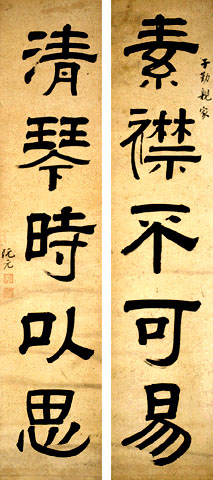 素襟不可易
子勤親家
清琴時以思
阮元